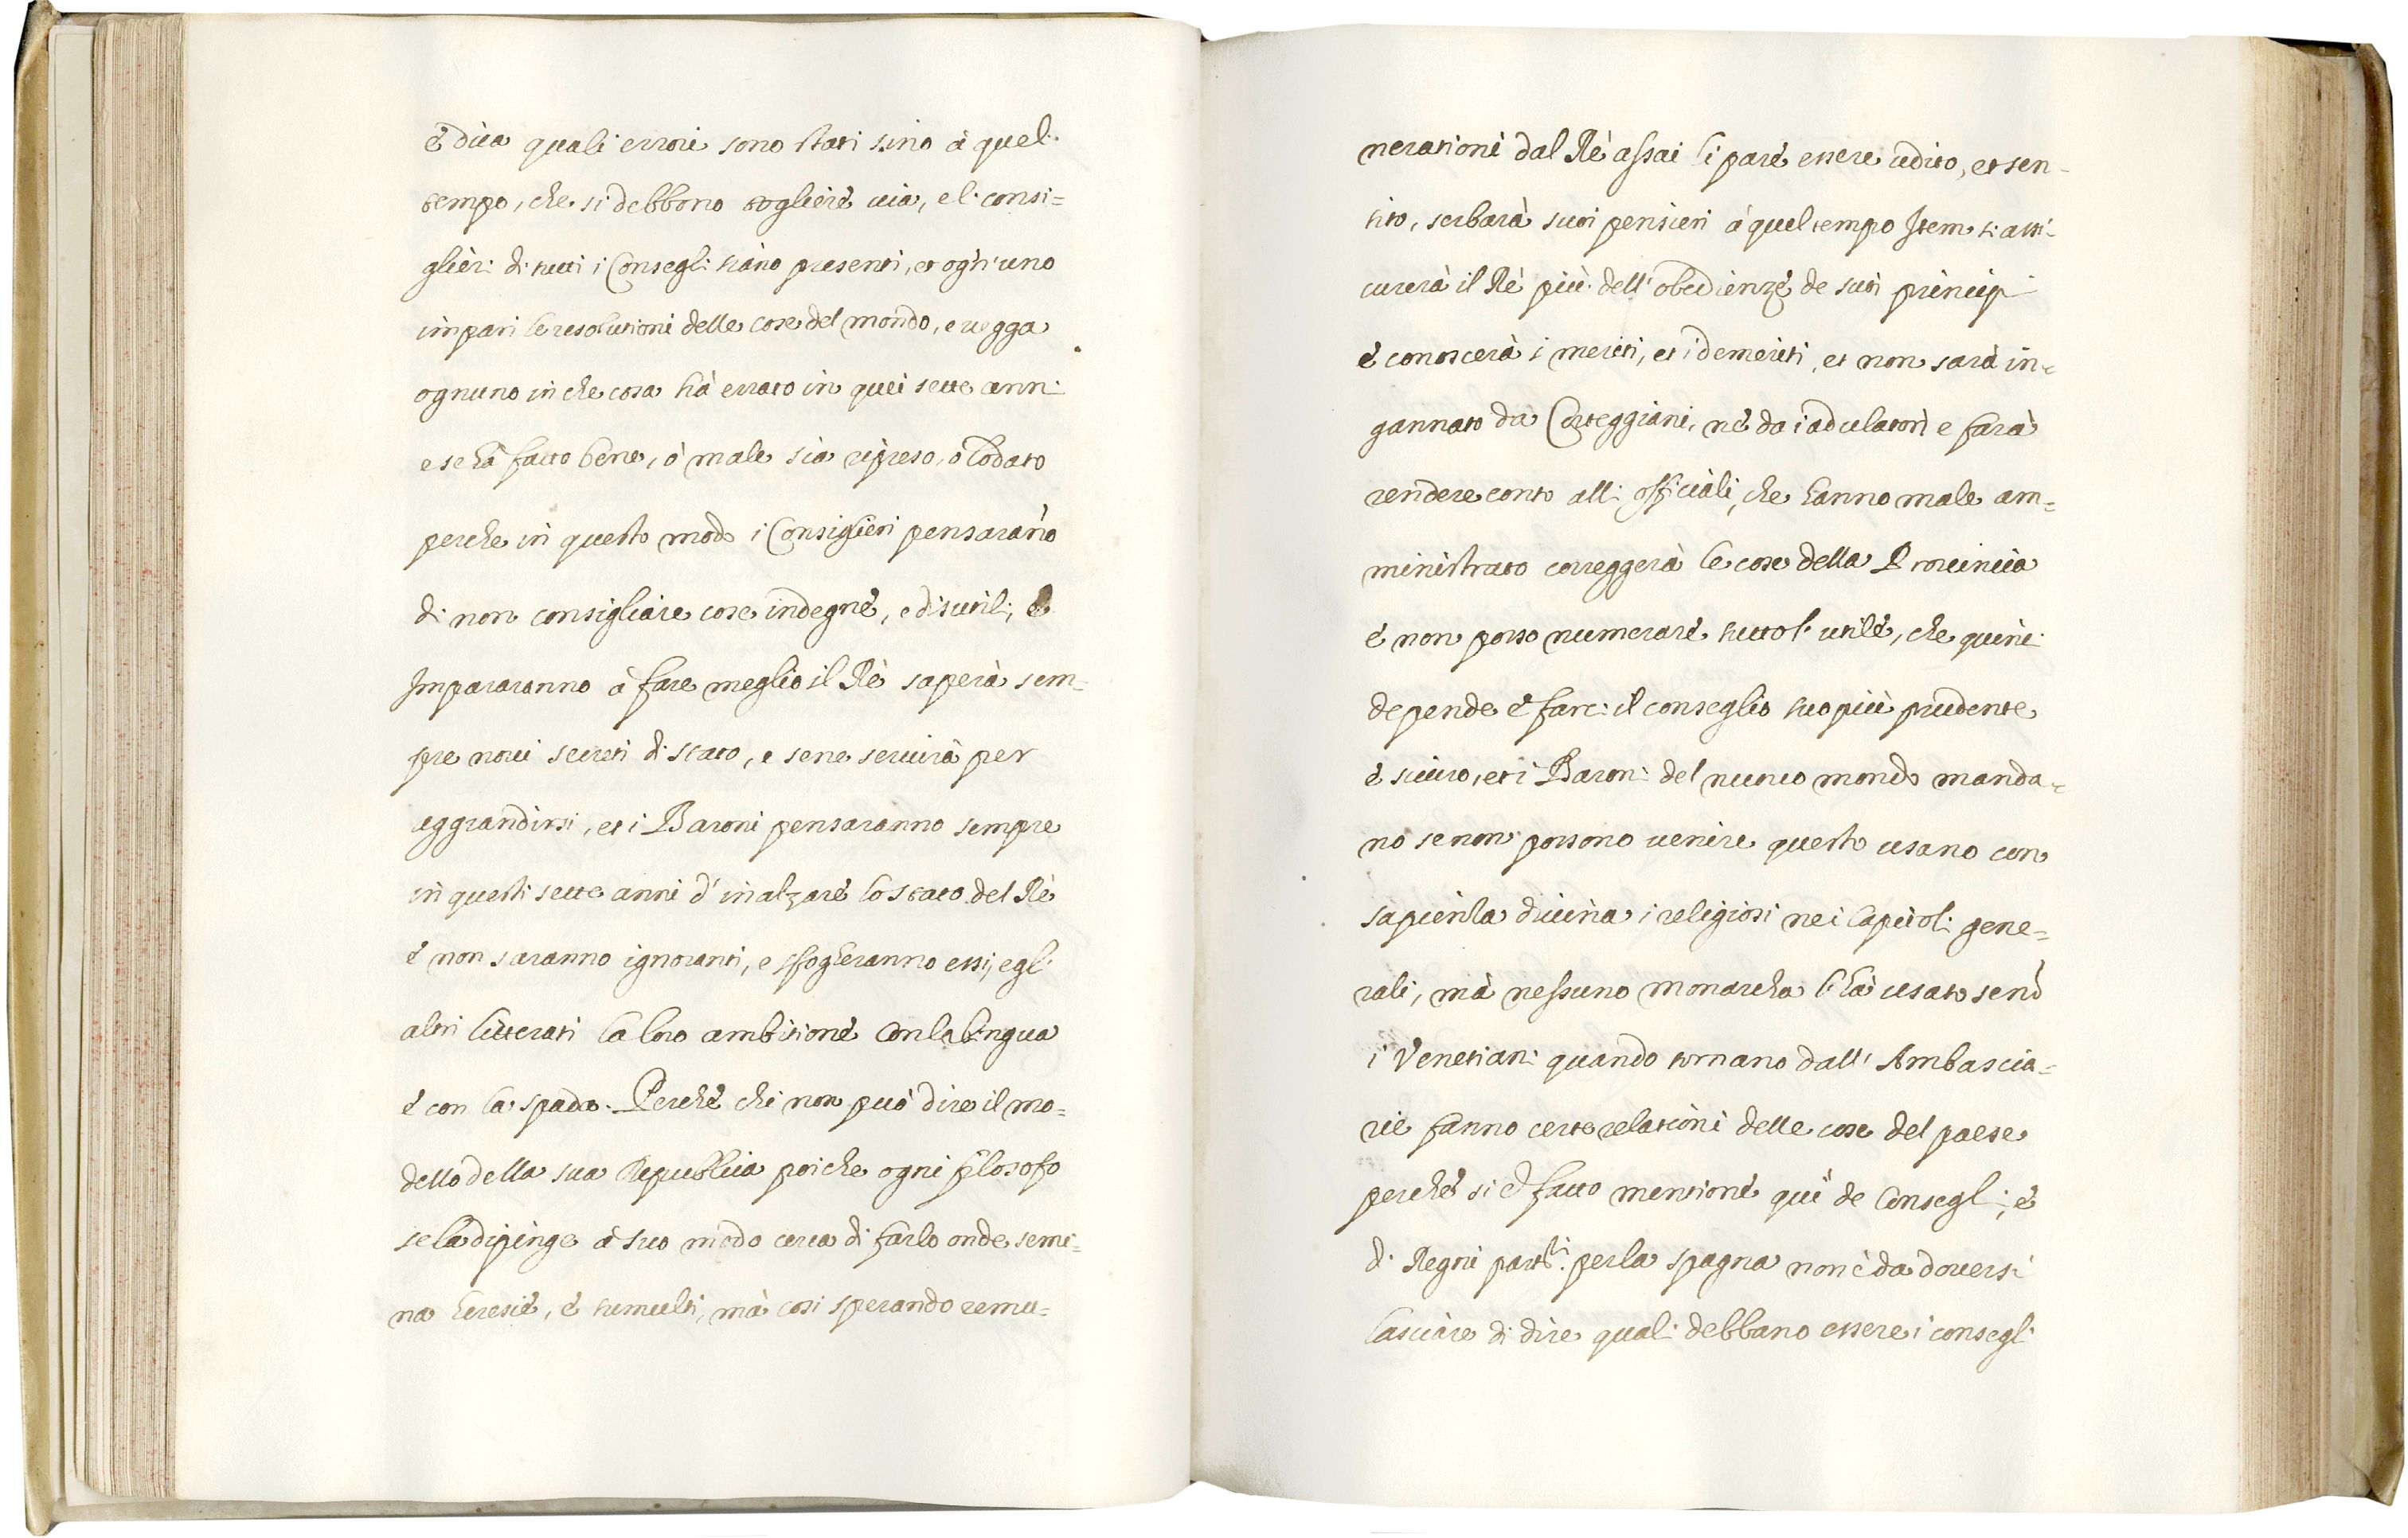 è dica quali errori sono stati sino à quel
tempo, che si debbono togliere uia, e li consi=
glieri di tutti i Consegli siano presenti, et ogn'uno
impari le resolutioni delle cose del mondo, e uegga
ognuno in che cosa hà errato in quei sette anni
e se hà fatto bene, ò male sia ripreso, ò lodato
perche in questo modo i Consiglieri pensaranno
di non consigliare cose indegne, e disutili, è
Impararanno à fare meglio il Rè saperà sem=
pre noui secreti di stato, e se ne seruirà per
aggrandirsi, et i Baroni pensaranno sempre
in questi sette anni d'inalzare lo stato del Rè
è non saranno ignoranti, e sfogheranno essi, e gli
altri litterati la loro ambitione con la lingua
è con la spada. Perche chi non può dire il mo=
dello della sua Republica poi che ogni filosofo
se la dipinge à suo modo cerca di farlo onde semi=
na heresie, è tumulti, mà così sperando remu=
nerationi dal Rè assai li pare essere udito, et sen=
tito, serbarà suoi pensieri à quel tempo Item si assi=
curerà il Rè più dell'obedienze de suoi principi
è conoscerà i meriti, et i demeriti, et non sarà in=
gannato da Corteggiani, nè da i adulatori e farà
rendere conto alli officiali, che hanno male am=
ministrato correggerà le cose della Prouincia
è non posso numerare tutto l'utile, che quini
depende è farci il conseglio suo più prudente
è sicuro, et i Baroni del nuouo mondo manda=
no se non possono uenire questo usano con
sapienza diuina i religiosi nei Capitoli gene=
rali, mà nessuno monarcha l'hà usato senò
i Venetiani quando tornano dall'Ambascia=
rie fanno certe relationi delle cose del paese
perche si è fatto mentione quì de Consegli, è
di Regni partli. per la spagna non è da douersi
lasciare di dire quali debbano essere i consegli